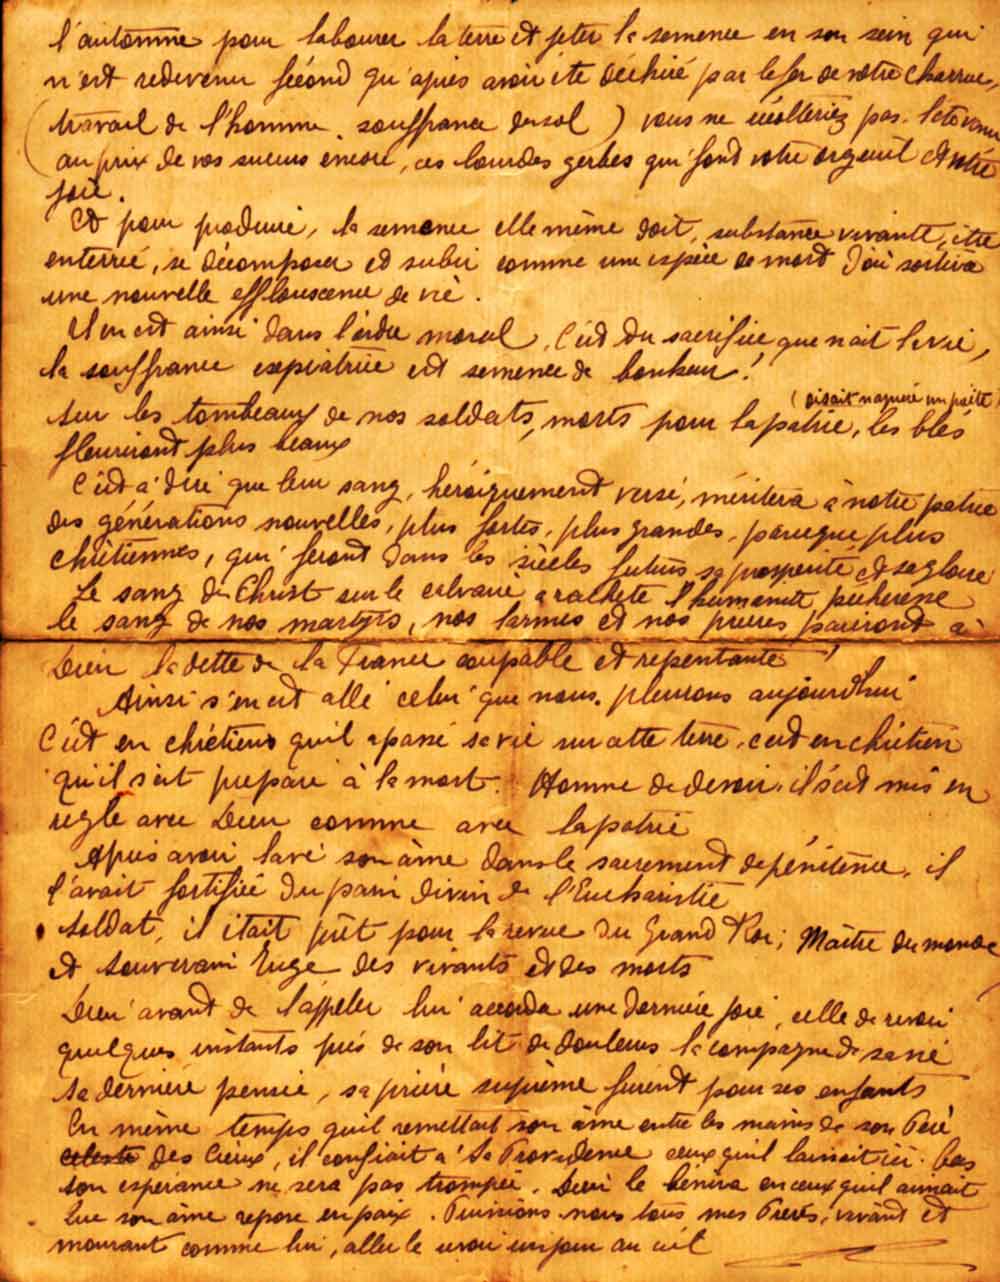 l'automne pour labourer la terre et jeter la semence en son sein qui
n'est redevenu fécond qu'après avoir été déchiré par le fer de votre charrue,
(travail de l'homme, souffrance du sol) vous ne récolteriez pas, l'été venu
au prix de vos sueurs encore, ces lourdes gerbes qui font votre orgueil et votre
joie.
Et pour produire, la semence elle même doit, substance vivante, être
enterrée, se décomposer et subir comme une espèce de mort d'où sortira
une nouvelle efflorescence de vie.
Il en est ainsi dans l'ordre moral. C'est du sacrifice que nait la vie,
la souffrance expiatrice est semence de bonheur!
(disait naguère un poète)
Sur les tombeaux de nos soldats, morts pour la patrie, les blés
fleuriront plus beaux
C'est à dire que leur sang, héroïquement versé, méritera à notre patrie
des générations nouvelles, plus fortes, plus grandes, parceque plus
chrétiennes, qui feront dans les siècles futurs sa prospérité et sa gloire
Le sang du Christ sur le calvaire a racheté l'humanité pécheresse
le sang de nos martyrs, nos larmes et nos prières paieront à
Dieu la dette de la France coupable et repentante!
Ainsi s'en est allé celui que nous pleurons aujourd'hui
C'est en chrétien qu'il a passé sa vie sur cette terre, c'est en chrétien
qu'il s'est préparé à la mort. Homme de devoir, il s'est mis en
règle avec Dieu comme avec la patrie
Après avoir lavé son âme dans le sacrement de pénitence, il
l'avait fortifiée du pain divin de l'Eucharistie
Soldat, il était prêt pour la revue du Grand Roi, Maître du monde
et Souverain Juge des vivants et des morts
Dieu avant de l'appeler lui accorda une dernière joie, celle de revoir
quelques instants près de son lit de douleurs la compagne de sa vie
Sa dernière pensée, sa prière suprême furent pour ses enfants
En même temps qu'il remettait son âme entre les mains de son Père
céleste des Cieux, il confiait à Sa Providence ceux qu'il laissait ici-bas
Son espérance ne sera pas trompée. Dieu le bénira en ceux qu'il aimait
Que son âme repose en paix. Puissions-nous tous, mes Frères, vivant et
mourant comme lui, aller le revoir un jour au ciel